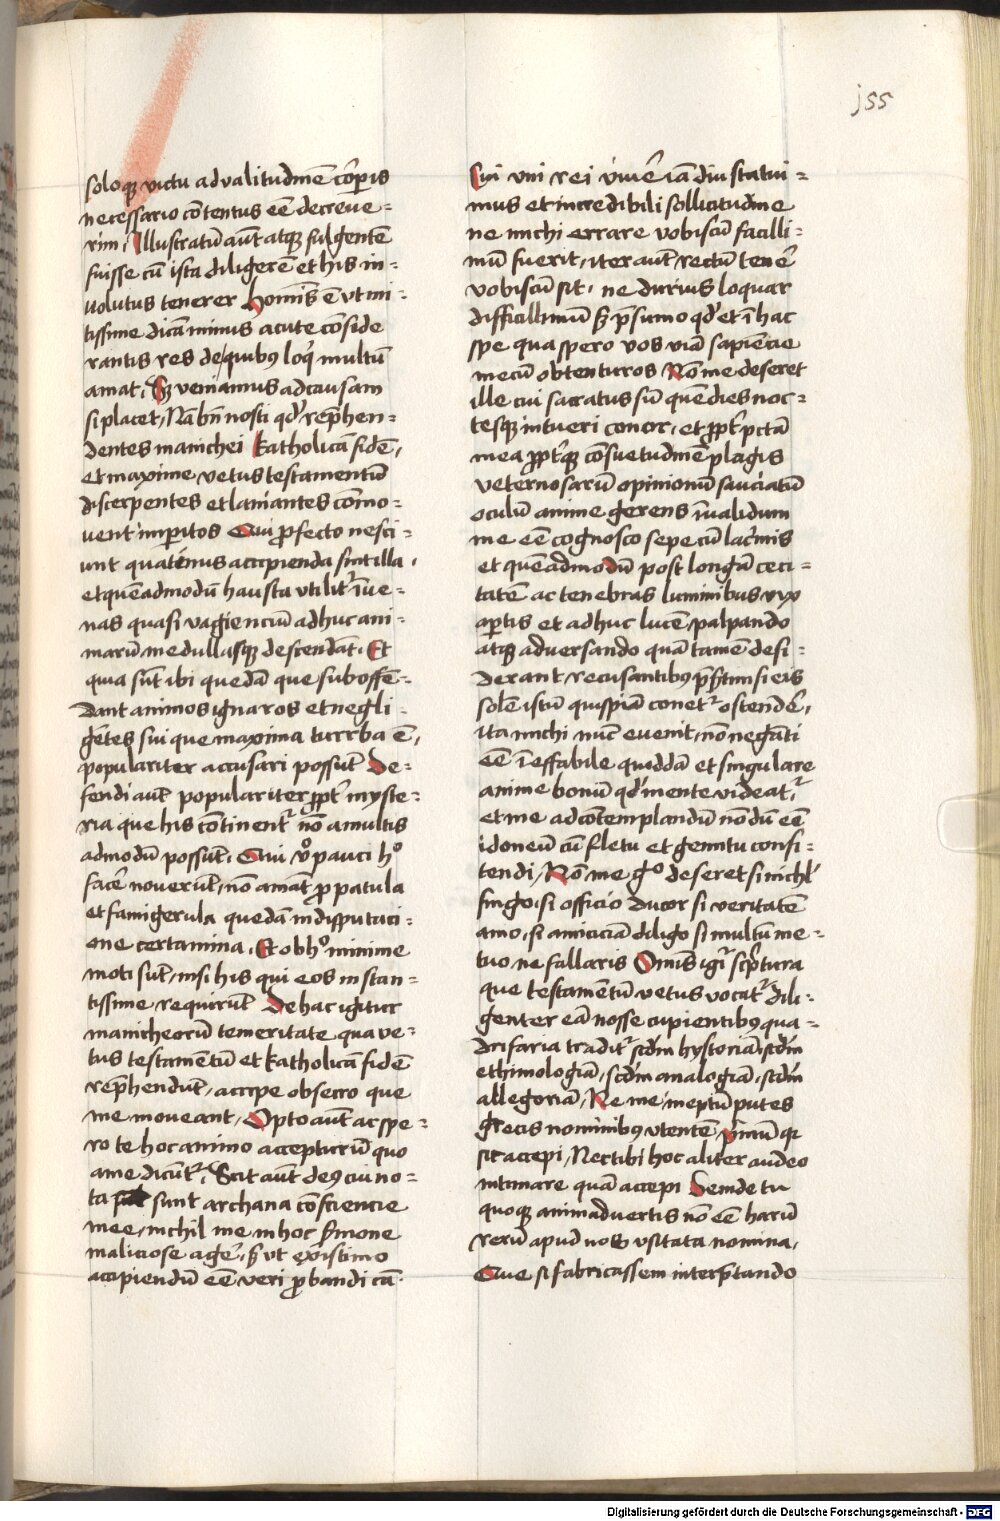 155
soloq victu ad valitudinē cōꝑis
necessario cōtentus eē decreue=
rim, Illustratū aūt atq fulgentē
fuisse cū ista diligerē et his in=
uolutus tenerer hoīmis ē vt mi=
tissime dicā minus acute cōside
rantis res de quibꝰ loq̄ multū
amat, Sꝫ veniamus ad causam
si placet, Nā bn̄ nosti qd̓ rep̄hen=
dentes manichei katholicā fidē,
et maxime vetus testamentū
discerpentes et laniantes cōmo=
uent imꝑitos Qui ꝓfecto nesci=
unt quatenus accipienda sint illa,
et quēadmodū hausta vtilit̄ ī ve=
nas quasi vagienciū adhuc ani=
marū medullisq descendāt, Et
quia sūt ibi quedā que suboffē=
dant animos ignaros et negli=
gētes sui que maxima turrba ē,
populariter accusari possūt De=
fendi aūt populariter ꝓpt̄ myste=
ria que his cōtinent᷑ nō a multis
admodū possūt, Qui v̊o pauci hᵒ
facē nouerūt, nō amāt ꝓpatula
et famigerula quedā in disputaci=
one certamina, Et ob hᵒ minime
moti sūt, nisi his qui eos instan=
tissime requirūt De hac igitur
manicheorū temeritate qua ve=
tus testamētū et katholicā fidē
rep̄hendūt, accipe obsecro que
me moueant, Opto aūt ac spe=
ro te hoc animo accepturū quo
a me dicūt᷑, Scit aūt deꝯ cui no=
ta sunt archana cōsciencie
mee, nichil me in hoc s̄mone
maliciose agē, sꝫ vt existimo
accipiendū eē veri ꝓbandi cā.
Cui vni rei viuē iā diu statui=
mus et incredibili sollicitudine
ne michi errare vobiscū facilli=
mū fuerit, iter aūt rectū tenē
vobiscū sit, ne durius loquar
difficillimū sꝫ p̄sumo qd̓ et ī hac
spe qua spero vos viā sapiēcie
mecū obtenturos Nō me deseret
ille cui sacratus sū quē dies noc=
tesq intueri conor, et ꝓpt̄ pctā
mea ꝓpt̄q cōsuetudinē plagis
veternosarū opinionū sauciatū
oculū anime gerens īualidum
me eē cognosco sepe cū lac̓mis
et quēadmodū post longā ceci=
tatē ac tenebras luminibus vix
aꝑtis et adhuc lucē, palpando
atq adversando quā tamē desi=
derant recusantibꝰ p̄s̄tim si eis
solē istū quispiā conet᷑ ostendē,
ita michi nūc evenit, nō negāti
eē īeffabile quoddā et singulare
anime bonū qd̓ mente videat᷑,
et me ad cōtemplandū nōdū eē
idoneū cū fletu et gemitu confi=
tendi, Nō me gᵒ deseret si nichl̓
fingo, si officio ducor si veritatē
amo, si amiciciā diligo si multū me=
tuo ne fallaris Om̄is igī sc̓ptura
que testamētū vetus vocat᷑ dili=
genter eā nosse cupientibꝰ qua=
drifaria tradit᷑ scdm̄ hystoriā, scdm̄
ethimologiā, scdm̄ analogiā, scdm̄
allegoriā, Ne me ineptū putes
grecis nominibꝰ vtentē, p̓mū qꝛ
sic accepi, Nec tibi hoc aliter audeo
intimare quā accepi Deinde tu
quoq animadvertis nō eē harū
rerū apud nos vsitata nomina,
Que si fabricassem interp̄tando
Digitalisierung gefördert durch die Deutsche Forschungsgemeinschaft - DFG